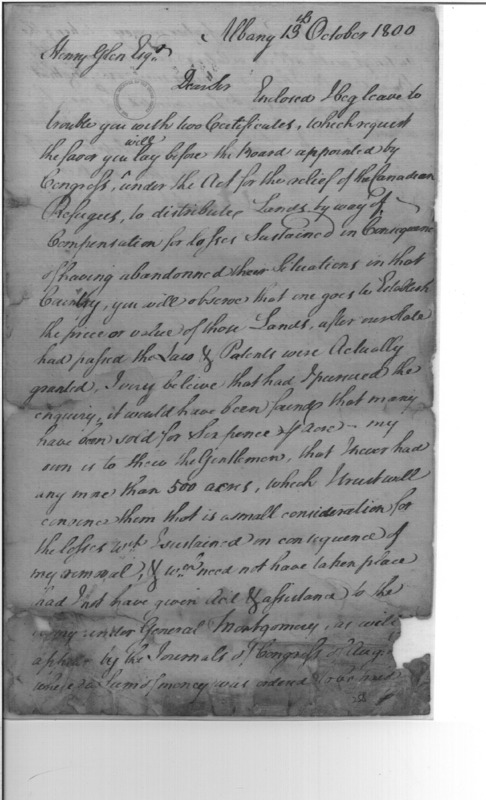 Albany 13th October 1800
Henry Glen Esqr
Dear Sir Enclosed I beg leave to
trouble you with two Certificates, which request
the favor you will lay before the Board appointed by
Congress, under the Act for the relief of the Canadean
Refugees, to distribute Lands by way of
Compensation for losses Sustained in Consequence
of having abandonned their Situations in that
Country, you will observe that one goes to Establish
the price or value of those Lands, after our State
had passed the Law & Patents were Actually
granted, I very beleive that had I pursued the
enquiry, it would have been found that many
have been sold for Six pence pr acre - my
is to shew the Gentlemen, that I never had
any more than 500 acres, which I trust will
convince them that is a small consideration for
the losses wch I sustained in consequence of
my removal, & wch need not have taken place
had I not have given Aid & assistance to the
army under General Montgomery, as will
appear by the Journals of Congress of
where a Sum of money was ordered